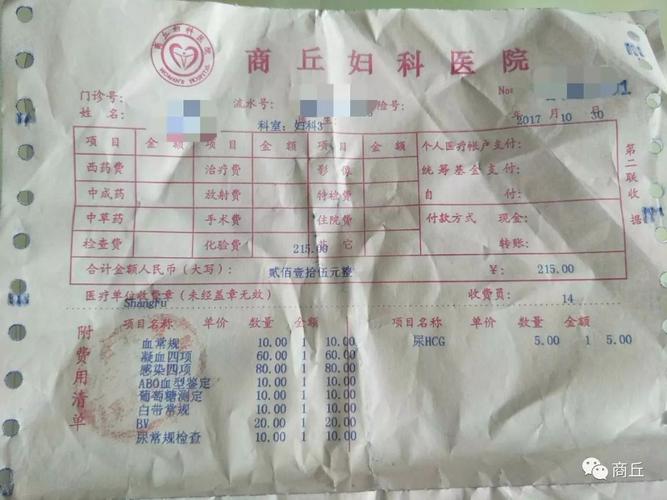 商丘妇科医院
WOMAN'S HOSPITAL
商丘妇科医院
门诊号: 流水号: 险号: No:
姓名: 科室: 妇科3 2017年10月30日
项目 金额 项目 金额 项目 金额 个人医疗帐户支付:
西药费 治疗费 影像 统筹基金支付:
中成药 放射费 特检费 自付:
中草药 手术费 住院费 付款方式 现金:
检查费 化验费 215.00 其它 转账:
合计金额人民币(大写): 贰佰壹拾伍元整 ¥: 215.00
医疗单位收费章(未经盖章无效) 收费员: 14
ShangFu
第二联收据
附费用清单
项目名称 单价 数量 金额 项目名称 单价 数量 金额
血常规 10.00 1 10.00 尿HCG 5.00 1 5.00
凝血四项 60.00 1 60.00
感染四项 80.00 1 80.00
ABO血型鉴定 10.00 1 10.00
葡萄糖测定 10.00 1 10.00
白带常规 10.00 1 10.00
BV 20.00 1 20.00
尿常规检查 10.00 1 10.00
商丘